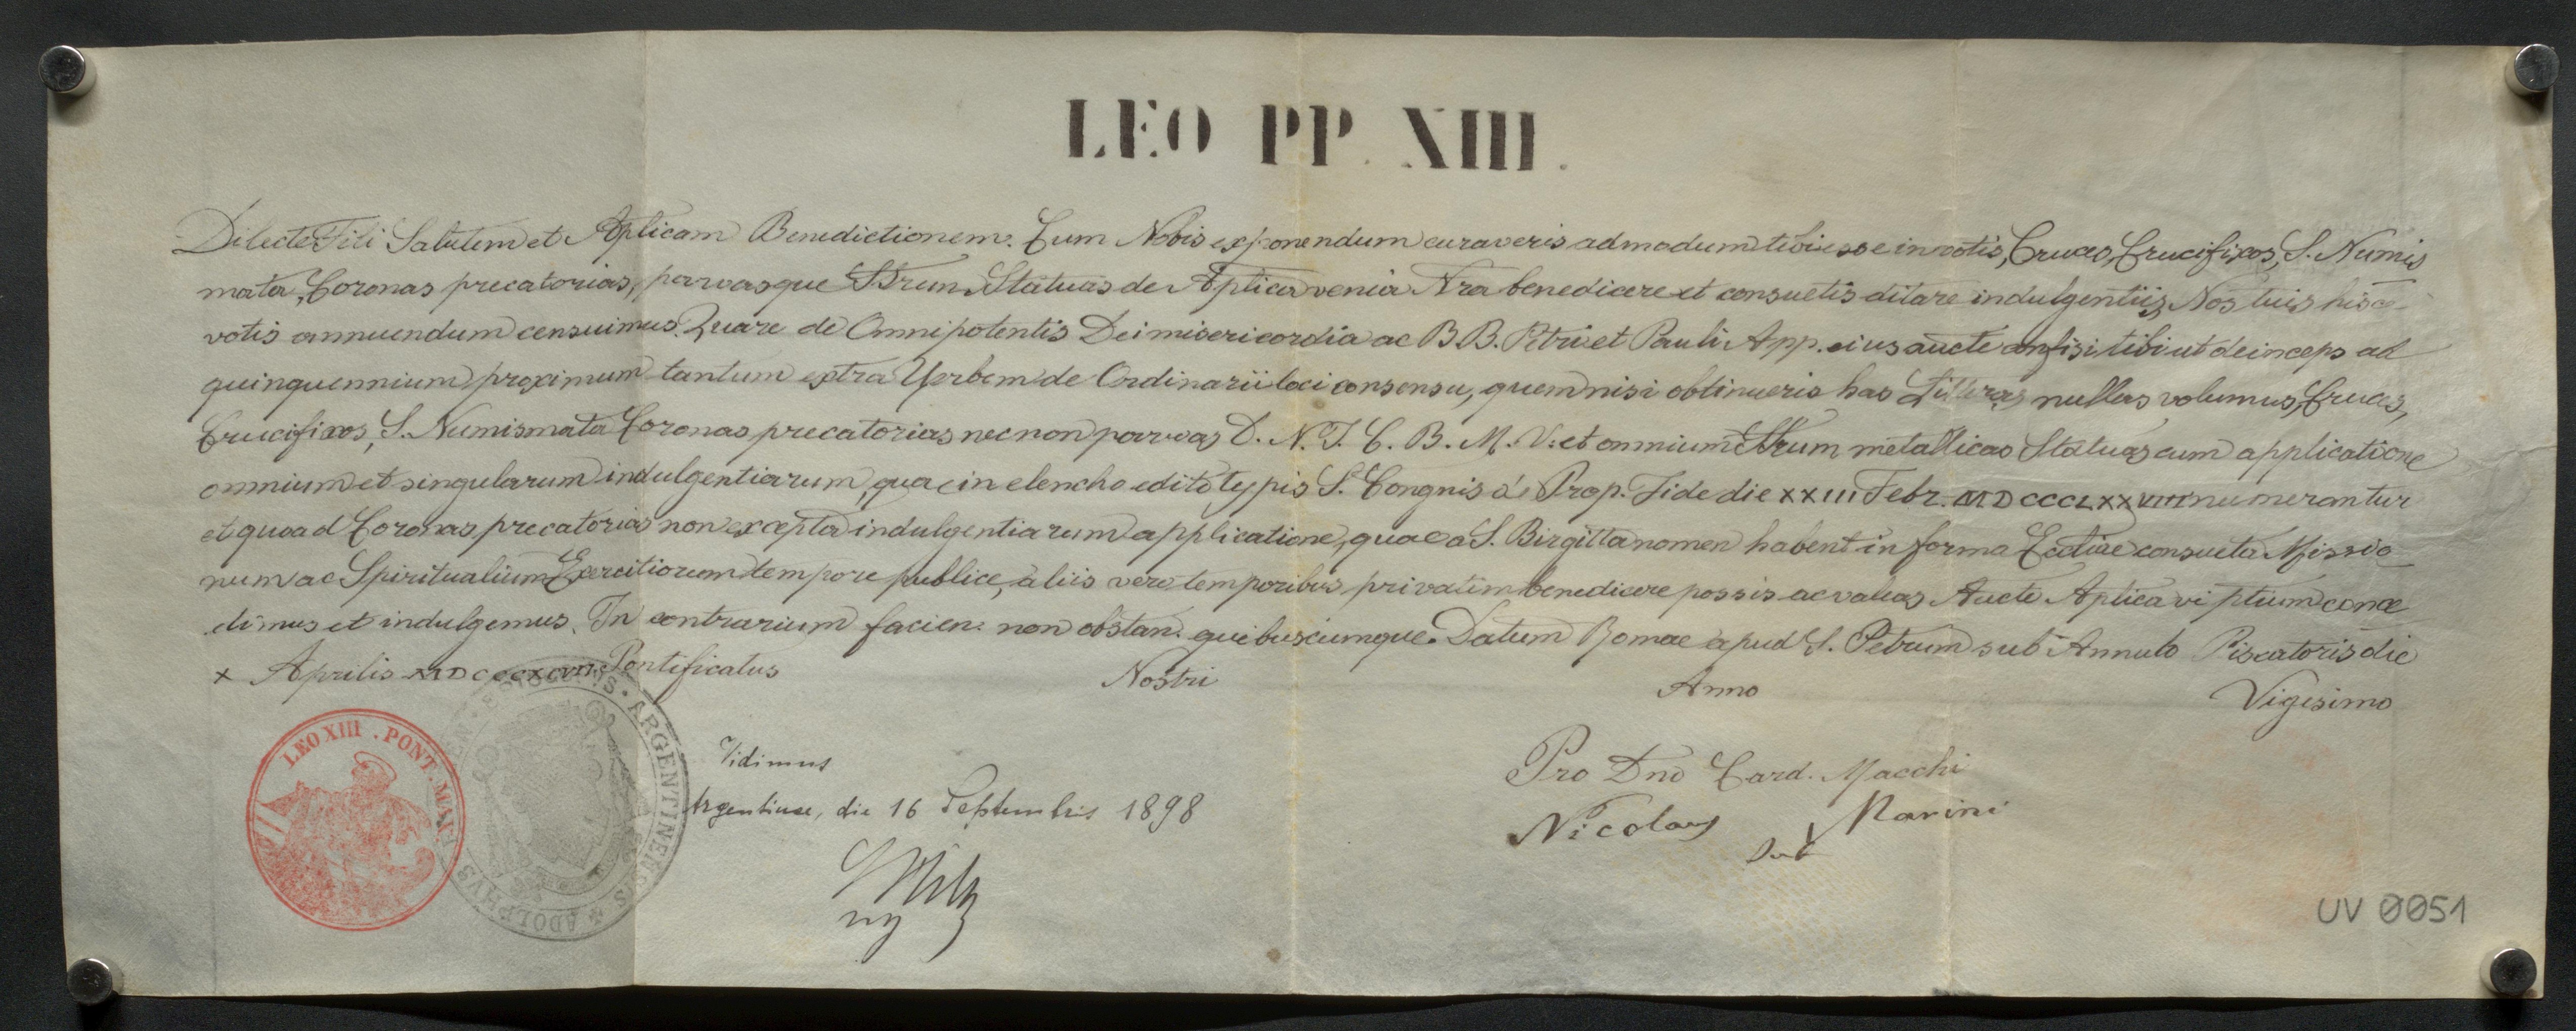 LEO PP. XIII.
Dilecte Fili Salutem et Aplicam Benedictionem. Cum Nobis exponendum curaveris admodum tibi esse in votis, Cruces, Crucifixos, S. Numis
mata, Coronas precatorias, parvasque SSrum Statuas de Aplica venia Nra benedicere et consuetis ditare indulgentiis, Nos tuis hisce
votis annuendum censuimus. Quare de Omnipotentis Dei misericordia ac BB. Petri et Pauli App. eius aucte confisi tibi ut deinceps ad
quinquennium proximum tantum extra Urbem de Ordinarii loci consensu, quem nisi obtinueris has Litteras nullas volumus, Cruces,
Crucifixos, S. Numismata Coronas precatorias necnon parvas D. N. J. C. B. M. V. et omnium SSrum metallicas Statuas cum applicatione
omnium et singularum indulgentiarum, quae in elencho edito typis S. Congnis de Prop. Fide die XXIII Febr. MDCCCLXXVIII numerantur
et quoad Coronas precatorias non excepta indulgentiarum applicatione, quae a S. Birgitta nomen habent in forma Ecctiae consueta Missio
num ac Spiritualium Exercitiorum tempore publice, aliis vero temporibus privatim benedicere possis ac valeas Aucte Aplica vi ptium conce
dimus et indulgemus. In contrarium facien: non obstan. quibuscumque. Datum Romae apud S. Petrum sub Annulo Piscatoris die
X Aprilis MDCCCXCVII Pontificatus Nostri Anno Vigesimo
LEO XIII . PONT . MAX
ADOLPHVS EPISCOPVS . ARGENTINENSIS
Vidimus
Argentinae, die 16 Septembris 1898
Pro Dno Card. Macchi
Nicolaus Marini
Sub
UV 0051